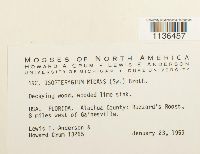 1136457
MOSSES OF NORTH AMERICA
HOWARD A. CRUM - LEWIS E. ANDERSON
UNIVERSITY OF MICHIGAN - DUKE UNIVERSITY
ISOPTERYGIUM MICANS (Sw.) Broth.
Decaying wood, wooded lime sink.
USA. FLORIDA. Alachua County: Buzzard's Roost,
8 miles west of Gainesville.
Lewis E. Anderson &
Howard Crum
January 23,